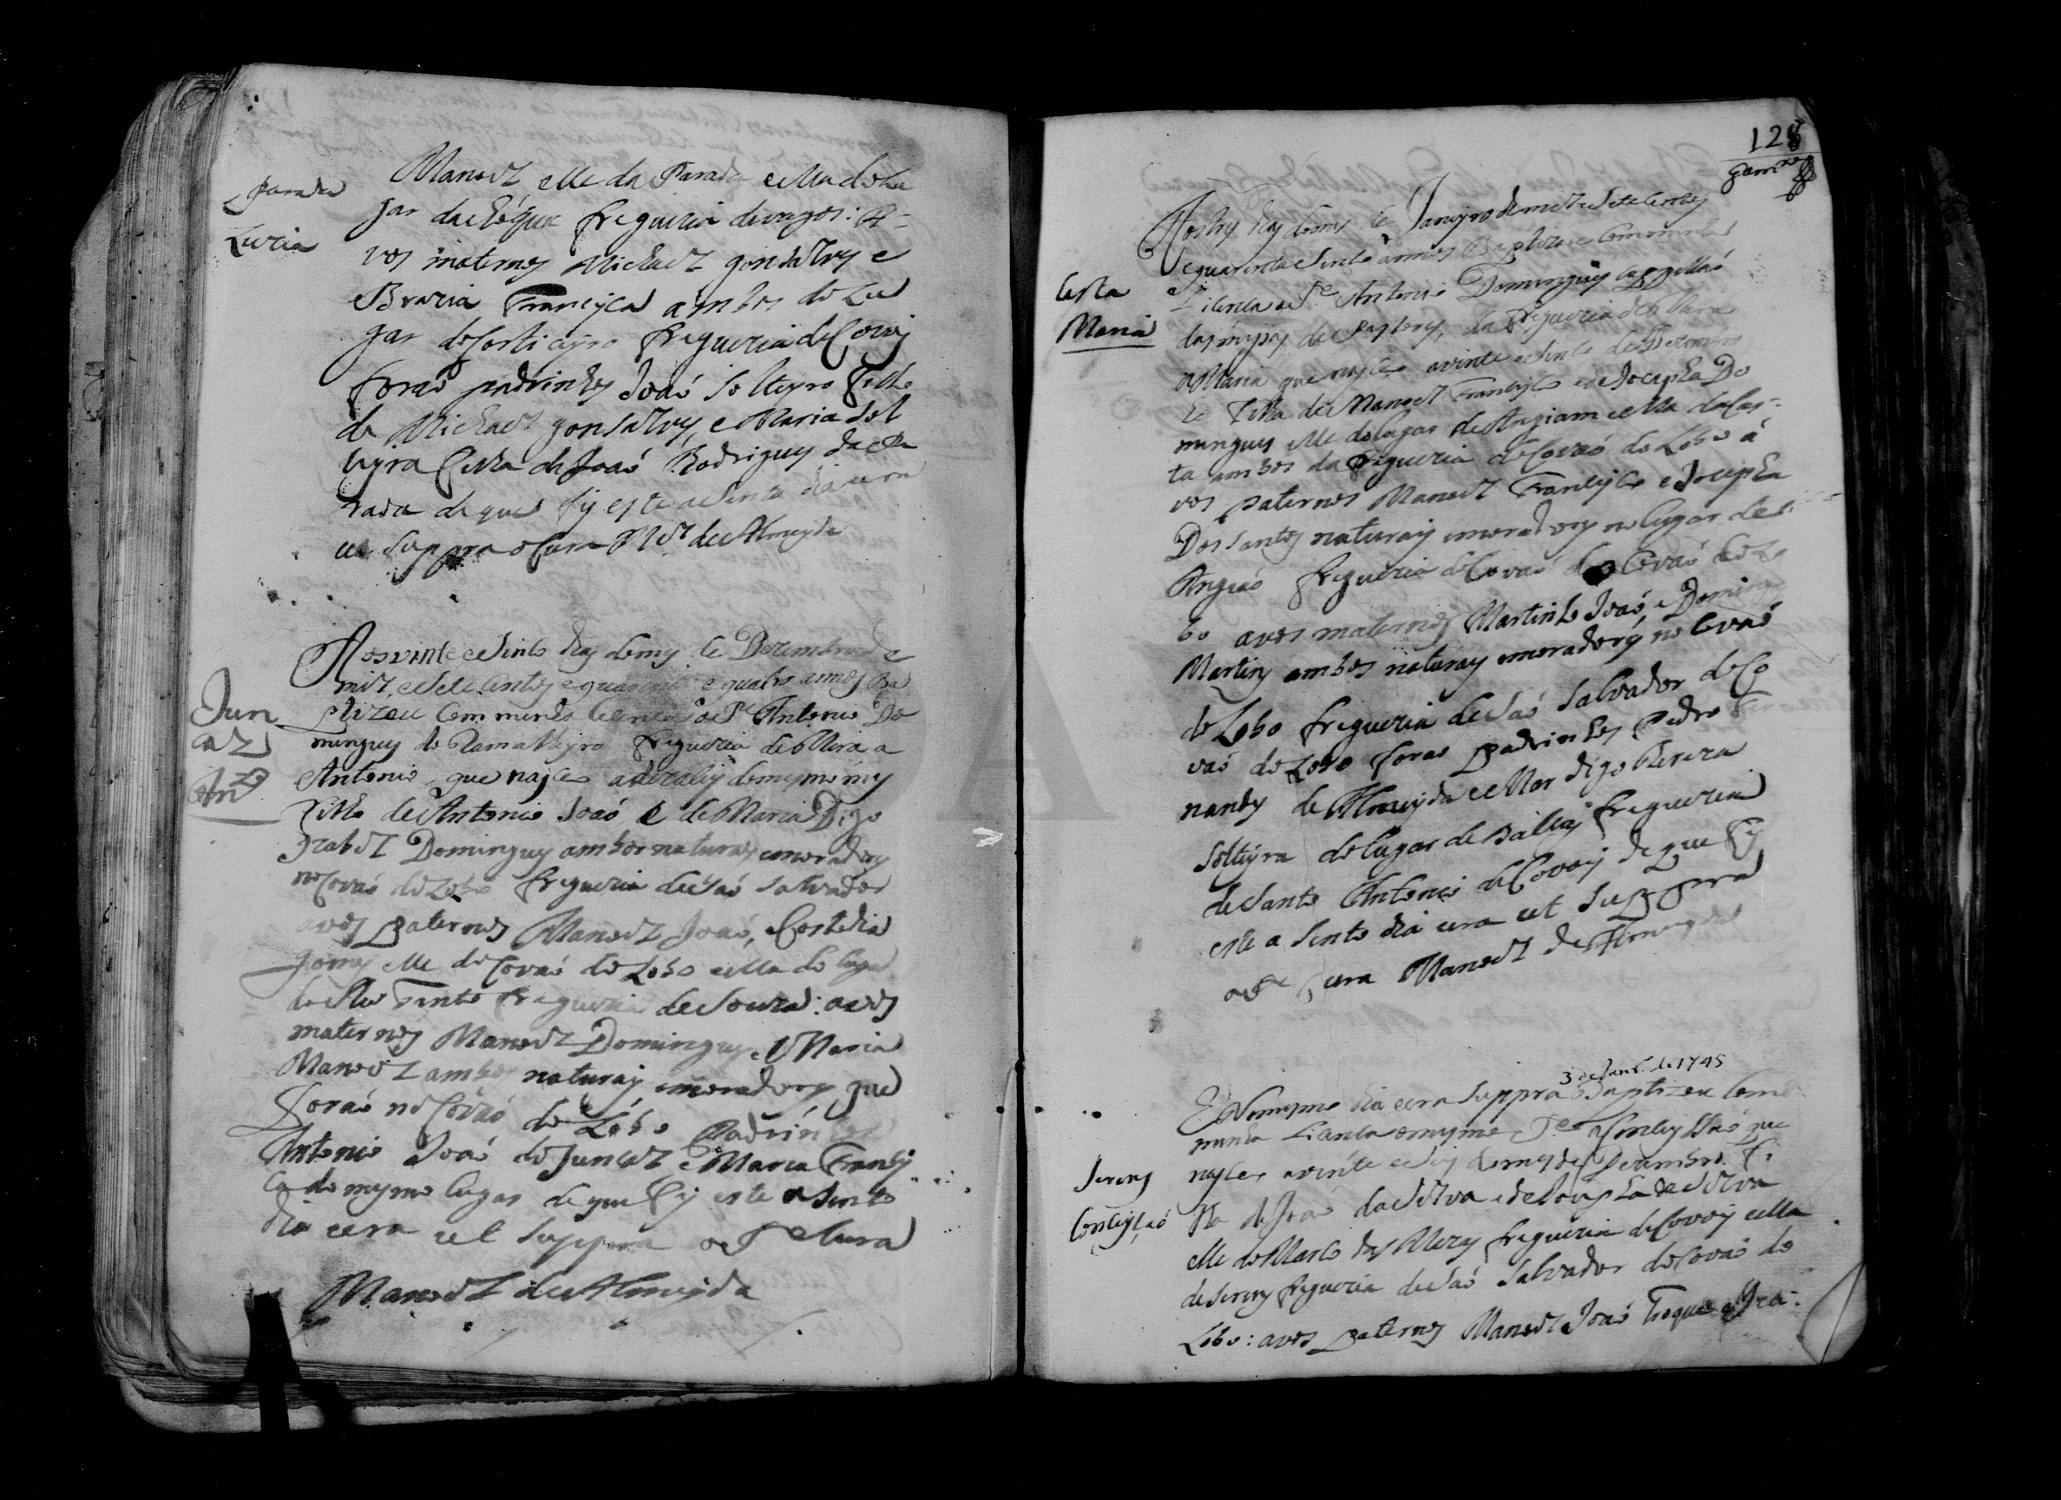 Parada
Luzia
Manoel elle da Parada e ella do lu
gar da freguezia de vagos: A=
vos maternos Michael gonsalves e
Brazia Francisca ambos do Lu
gar do Corticeyro freguezia de Covoiz
foraó padrinhos Joaó solteyro filho
de Michael gonsalves, e Maria sol
teyra filha de Joaó Rodriguez da Pa
rada de que fiz este asento dia e era
ut suppra o Cura Mel de Almeyda
Jun
cal
Anto
Aos vinte e sinco dias do mes de Dezembro de
mil e sete centos e quarenta e quatro annos Ba
ptizou com minha licença o Pe Antonio Do
minguez do Ramalheyro freguezia de Mira a
Antonio, que nasceo a dezaseis do mesmo mes
filho de Antonio Joaó e de Maria Digo
Izabel Dominguez ambos naturaes e moradores
no Covaó do Lobo freguezia de Saó Salvador
avos paternos Manoel Joaó, e Costodia
Gomes elle do Covaó do Lobo e ella do lugar
do Rio Tinto freguezia de Souza: avos
maternos Manoel Dominguez, e Maria
Manoel ambos naturaes e moradores que
foraó no Covaó do Lobo Padrinhos
Antonio Joaó do Juncal e Maria Francis
ca do mesmo lugar de que fiz este asento
dia e era ut suppra o Pe Cura
Manoel de Almeyda
128
Costa
Maria
Aos tres dias do mes de Janeyro de mil e sete centos
e quarenta e sinco annos Baptizou com minha
Licenca o Pe Antonio Dominguez cappellaó
da freguezia de Mira
a Maria que nasceo a vinte e sinco de Dezembro
filha de Manoel Francisco e de Josepha Do
minguez elle do lugar de Angiam e ella da Cos=
ta ambos da freguezia de Covaó do Lobo á
vos paternos Manoel Francisco e Josepha
Dos santos naturaes e moradores no lugar de
Angiaó freguezia de Covaó do Covaó do Lo
bo avos maternos Martinho Joaó, e Domingas
Martins ambos naturaes e moradores no Covaó
do Lobo freguezia de Saó Salvador de Co
vaó do Lobo foraó Padrinhos Pedro Fer
nandes de Almeyda e digo Tereza
solteyra do lugar de freguezia
de Santo Antonio de Covoiz de que fiz
este asento dia e era ut suppra
o Pe Cura Manoel de Almeyda
3 de Janro de 1745
Seroes
Conceyçaó
E No mesmo dia e era suppra Baptizou com
minha licenca o mesmo Pe a Conceyssaó que
nasceo a vinte e seis do mes de Dezembro fi
lha de Joaó da Silva e de Josepha da Silva
elle do freguezia de Covoiz e ella
de Seroes freguezia de Saó Salvador do Covaó do
Lobo: avos paternos Manoel Joaó